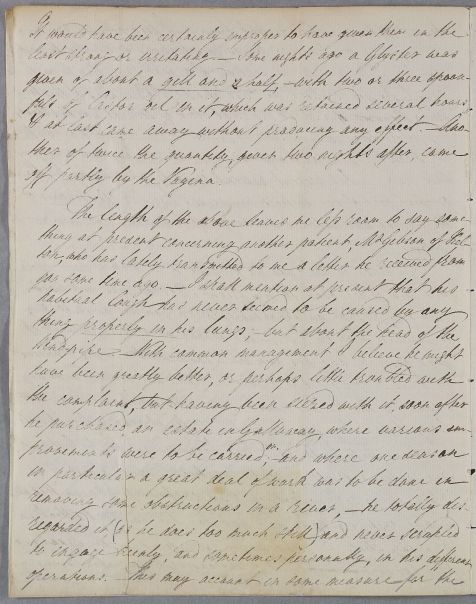 It would have been certainly improper to have given them in the
least strong or irritating — Some nights ago a Glyster was
given of about a gill and a half, — with two or three spoon-
fuls of Castor oil in it, which was retained several hours,
& at last came away without producing any effect — Ano-
ther of twice the quantity, given two nights after, came
off partly by the Vagina.
The length of the above leaves me less room to say some-
thing at present concerning another patient, Mr Gibson of
-ton, who has lately transmitted to me a letter he received from
you some time ago. — I shall mention at present that his
habitual cough has never seemed to be caused by any
thing properly in his lungs, — but about the head of the
Windpipe — With common management I believe he might
have been greatly better, or perhaps little troubled with
the complaint, but having been seized with it, soon after
he purchased an estate in Galloway, where various im-
provements were to be carried on, — and where one season
in particular a great deal of work was to be done in
removing some obstructions in a river, — he totally dis-
regarded it, (as he does too much still) and never scrupled
to ingage keenly, and sometimes personally, in his different
operations. — This may account in some measure for the